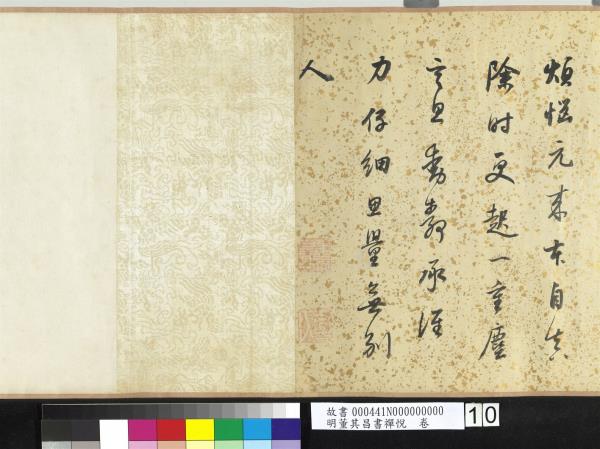 煩惱元來本自真
除时更起一重塵
言思動静承誰
力仔細思量無別
人
故書 000441N000000000
明董其昌書禪悅 卷
10